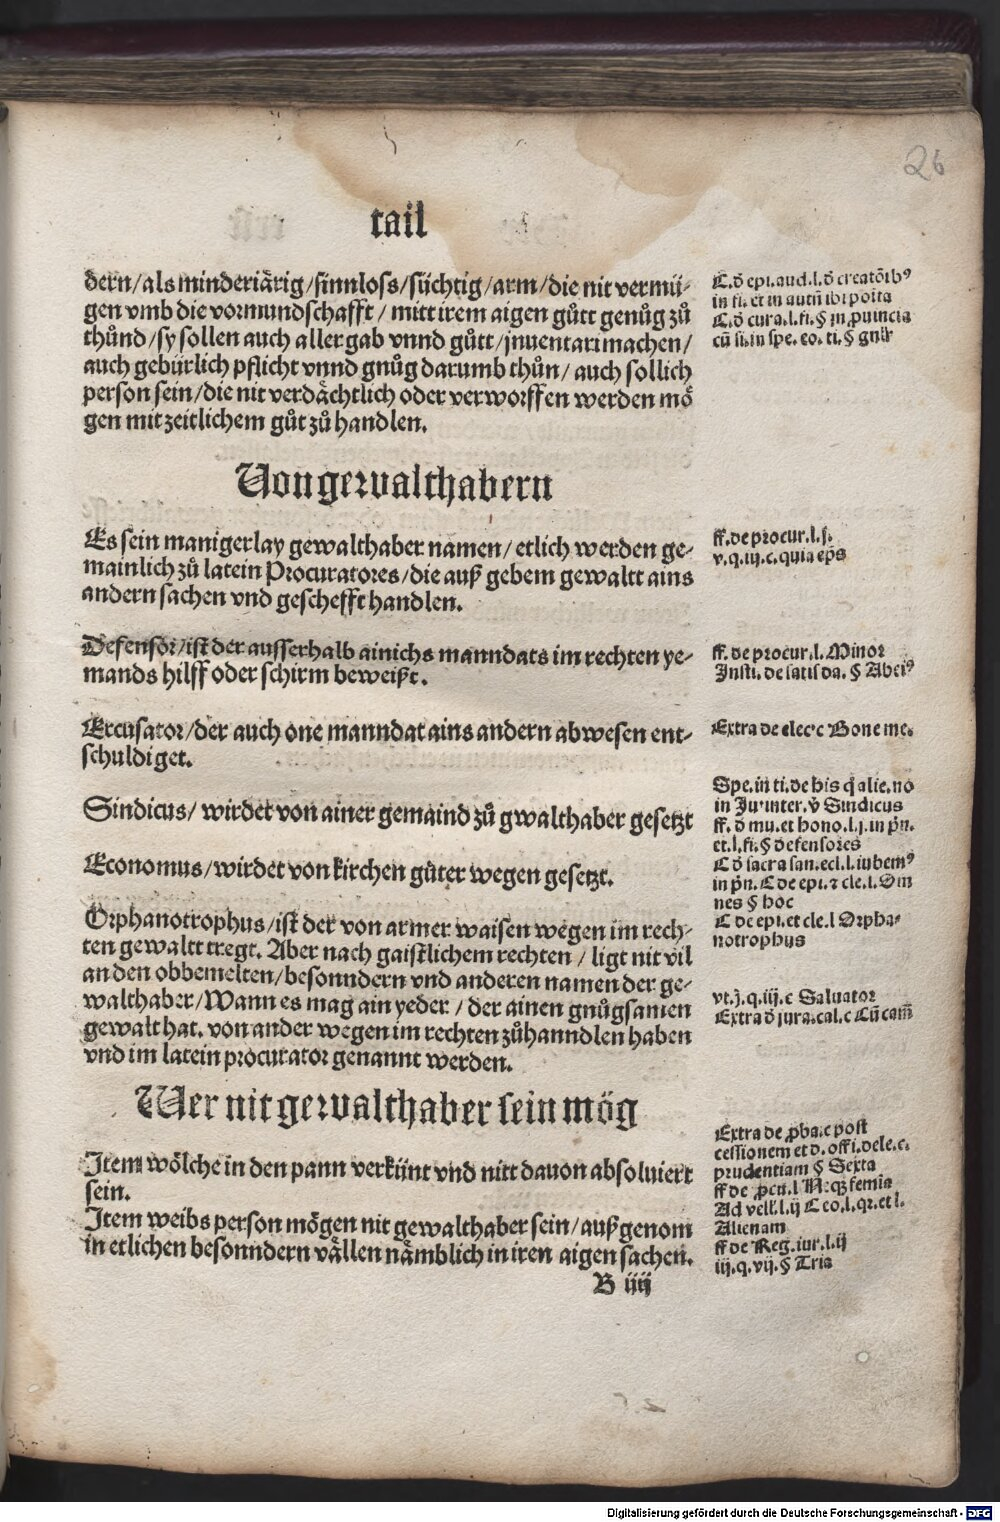 26
tail
dern/als minderiärig/sinnloss/süchtig/arm/die nit vermü-
gen vmb die vormundschafft/mitt irem aigen gůtt genůg zů
thůnd/sy sollen auch aller gab vnnd gůtt/jnuentari machen/
auch gebürlich pflicht vnnd gnůg darumb thůn/auch sollich
person sein/die nit verdächtlich oder verworffen werden mö
gen mit zeitlichem gůt zů handlen.
C.ď epi.aud.l.ď creatōibꝰ
Von gewalthabern
Es sein manigerlay gewalthaber namen/etlich werden ge-
mainlich zů latein Procuratores/die auß gebem gewalt ains
andern sachen vnd geschefft handlen.
ff.de procur.l.j.
v.q.iij.c.quia ep̄s
Defensor/ist der ausserhalb ainichs manndats im rechten ye-
mands hilff oder schirm beweißt.
ff.de procur.l.Minor
Insti.de satisda.§ Abeiꝰ
Excusator/der auch one manndat ains andern abwesen ent-
schuldiget.
Extra de elec c Bone me.
Sindicus/wirdet von ainer gemaind zů gwalthaber gesetzt
Spe.in ti.de his q̄ alie.no
in Ju inter.v̓ Sindicus
ff.ď mu.et hono.l.j.in p̄n.
et.l.fi.§ defensores
Economus/wirdet von kirchen gůter wegen gesetzt.
C ď sacrasan.ecl.l.iubemꝰ
in p̄n.C de epi.⁊ cle.l.Om
nes § hoc
Orphanotrophus/ist der von armer waisen wegen im rech-
ten gewaltt tregt. Aber nach gaistlichem rechten/ligt nit vil
an den obbemelten/besonndern vnd anderen namen der ge-
walthaber/Wann es mag ain yeder/der ainen gnůgsamen
gewalt hat. von ander wegen im rechten zůhanndlen haben
vnd im latein procurator genannt werden.
C de epi.et cle.l Orpha-
notrophus
vt.j.q.iij.c Saluator
Extra ď iura.cal.c Cū cam̄
Wer nit gewalthaber sein mög
Item wölche in den pann verkünt vnd nitt dauon absoluiert
sein.
Item weibs person mögen nit gewalthaber sein/außgenom
in etlichen besonndern vällen nämblich in iren aigen sachen.
Extra de ꝓba.c post
cessionem et d.offi.dele.c.
prudentiam § Sexta
Ad vell.l.ij C eo.l.qr.et l.
Alienam
ff de Reg.iur.l.ij
iij.q.vij.§ Tria
B iiij
Digitalisierung gefördert durch die Deutsche Forschungsgemeinschaft - DFG